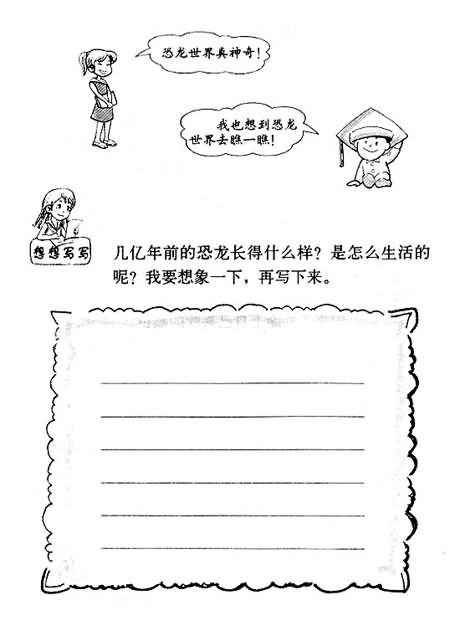 恐龙世界真神奇！
我也想到恐龙
世界去瞧一瞧！
想想写写
几亿年前的恐龙长得什么样？是怎么生活的
呢？我要想象一下，再写下来。